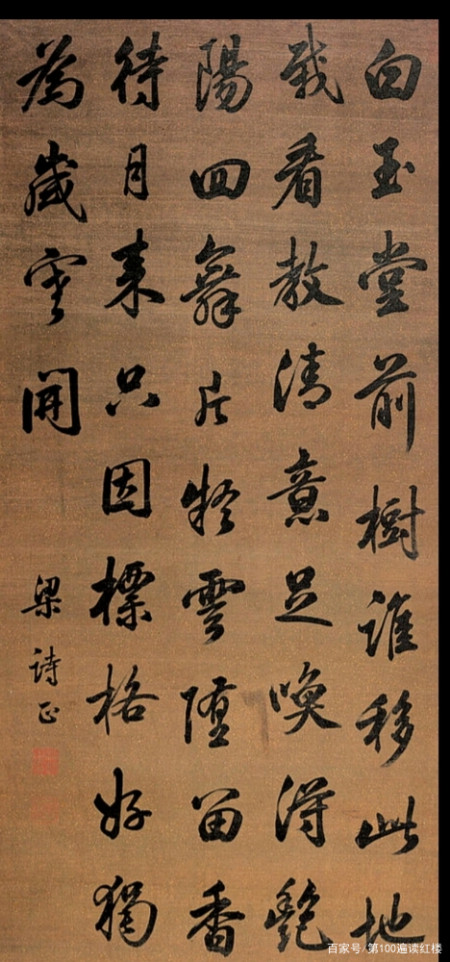 白玉堂前樹誰移此地
栽看教清意足喚得艷
陽回舞片疑雲墮留香
待月來只因標格好獨
為歲寒開
梁詩正
百家号/第100遍读红楼